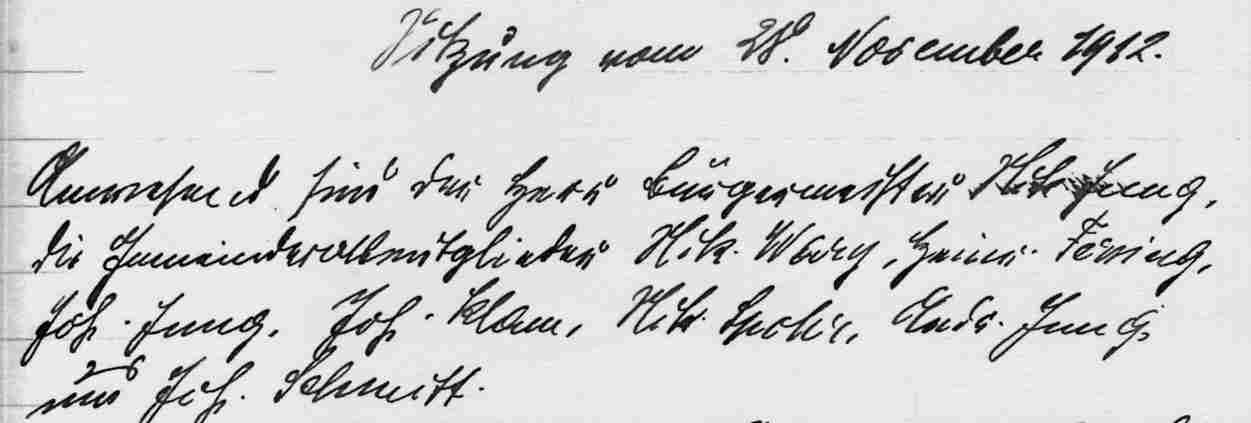 Sitzung vom 28. November 1912.
Anwesend sind der Herr Bürgermeister Nik. Jung,
die Gemeinderatsmitglieder Nik. Wary, Heinr. Fering,
Joh. Jung, Joh. Klam, Nik. Spohr, Andr. Jung
und Joh. Schmitt.